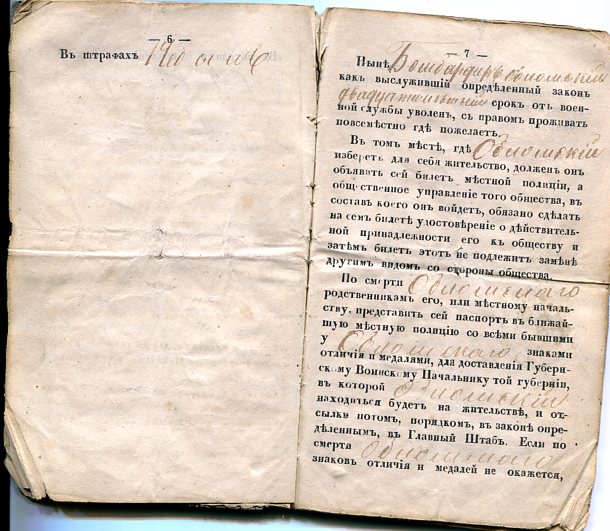 — 6 —
Въ штрафахъ не былъ
— 7 —
Нынѣ Бомбардиръ
какъ выслужившій опредѣленный закон
двадцатилѣтній срокъ отъ воен-
ной службы уволенъ, съ правомъ проживать
повсемѣстно гдѣ пожелаетъ.
Въ томъ мѣстѣ, гдѣ
изберетъ для себя жительство, долженъ онъ
объявить сей билетъ мѣстной полиціи, а
общественное управленіе того общества, въ
составъ коего онъ войдетъ, обязано сдѣлать
на семъ билетѣ удостовѣреніе о дѣйствитель-
ной принадлежности его къ обществу и
затѣмъ билетъ этотъ не подлежитъ замѣнѣ
другимъ видомъ со стороны общества.
По смерти
родственникамъ его, или мѣстному началь-
ству, представить сей паспортъ въ ближай-
шую мѣстную полицію со всѣми бывшими
у знаками
отличія и медалями, для доставленія Губерн-
скому Воинскому Начальнику той губерніи,
въ которой
находиться будетъ на жительствѣ, и от-
сылки потомъ, порядкомъ, въ законѣ опре-
дѣленнымъ, въ Главный Штабъ. Если по
смерти
знаковъ отличія и медалей не окажется,